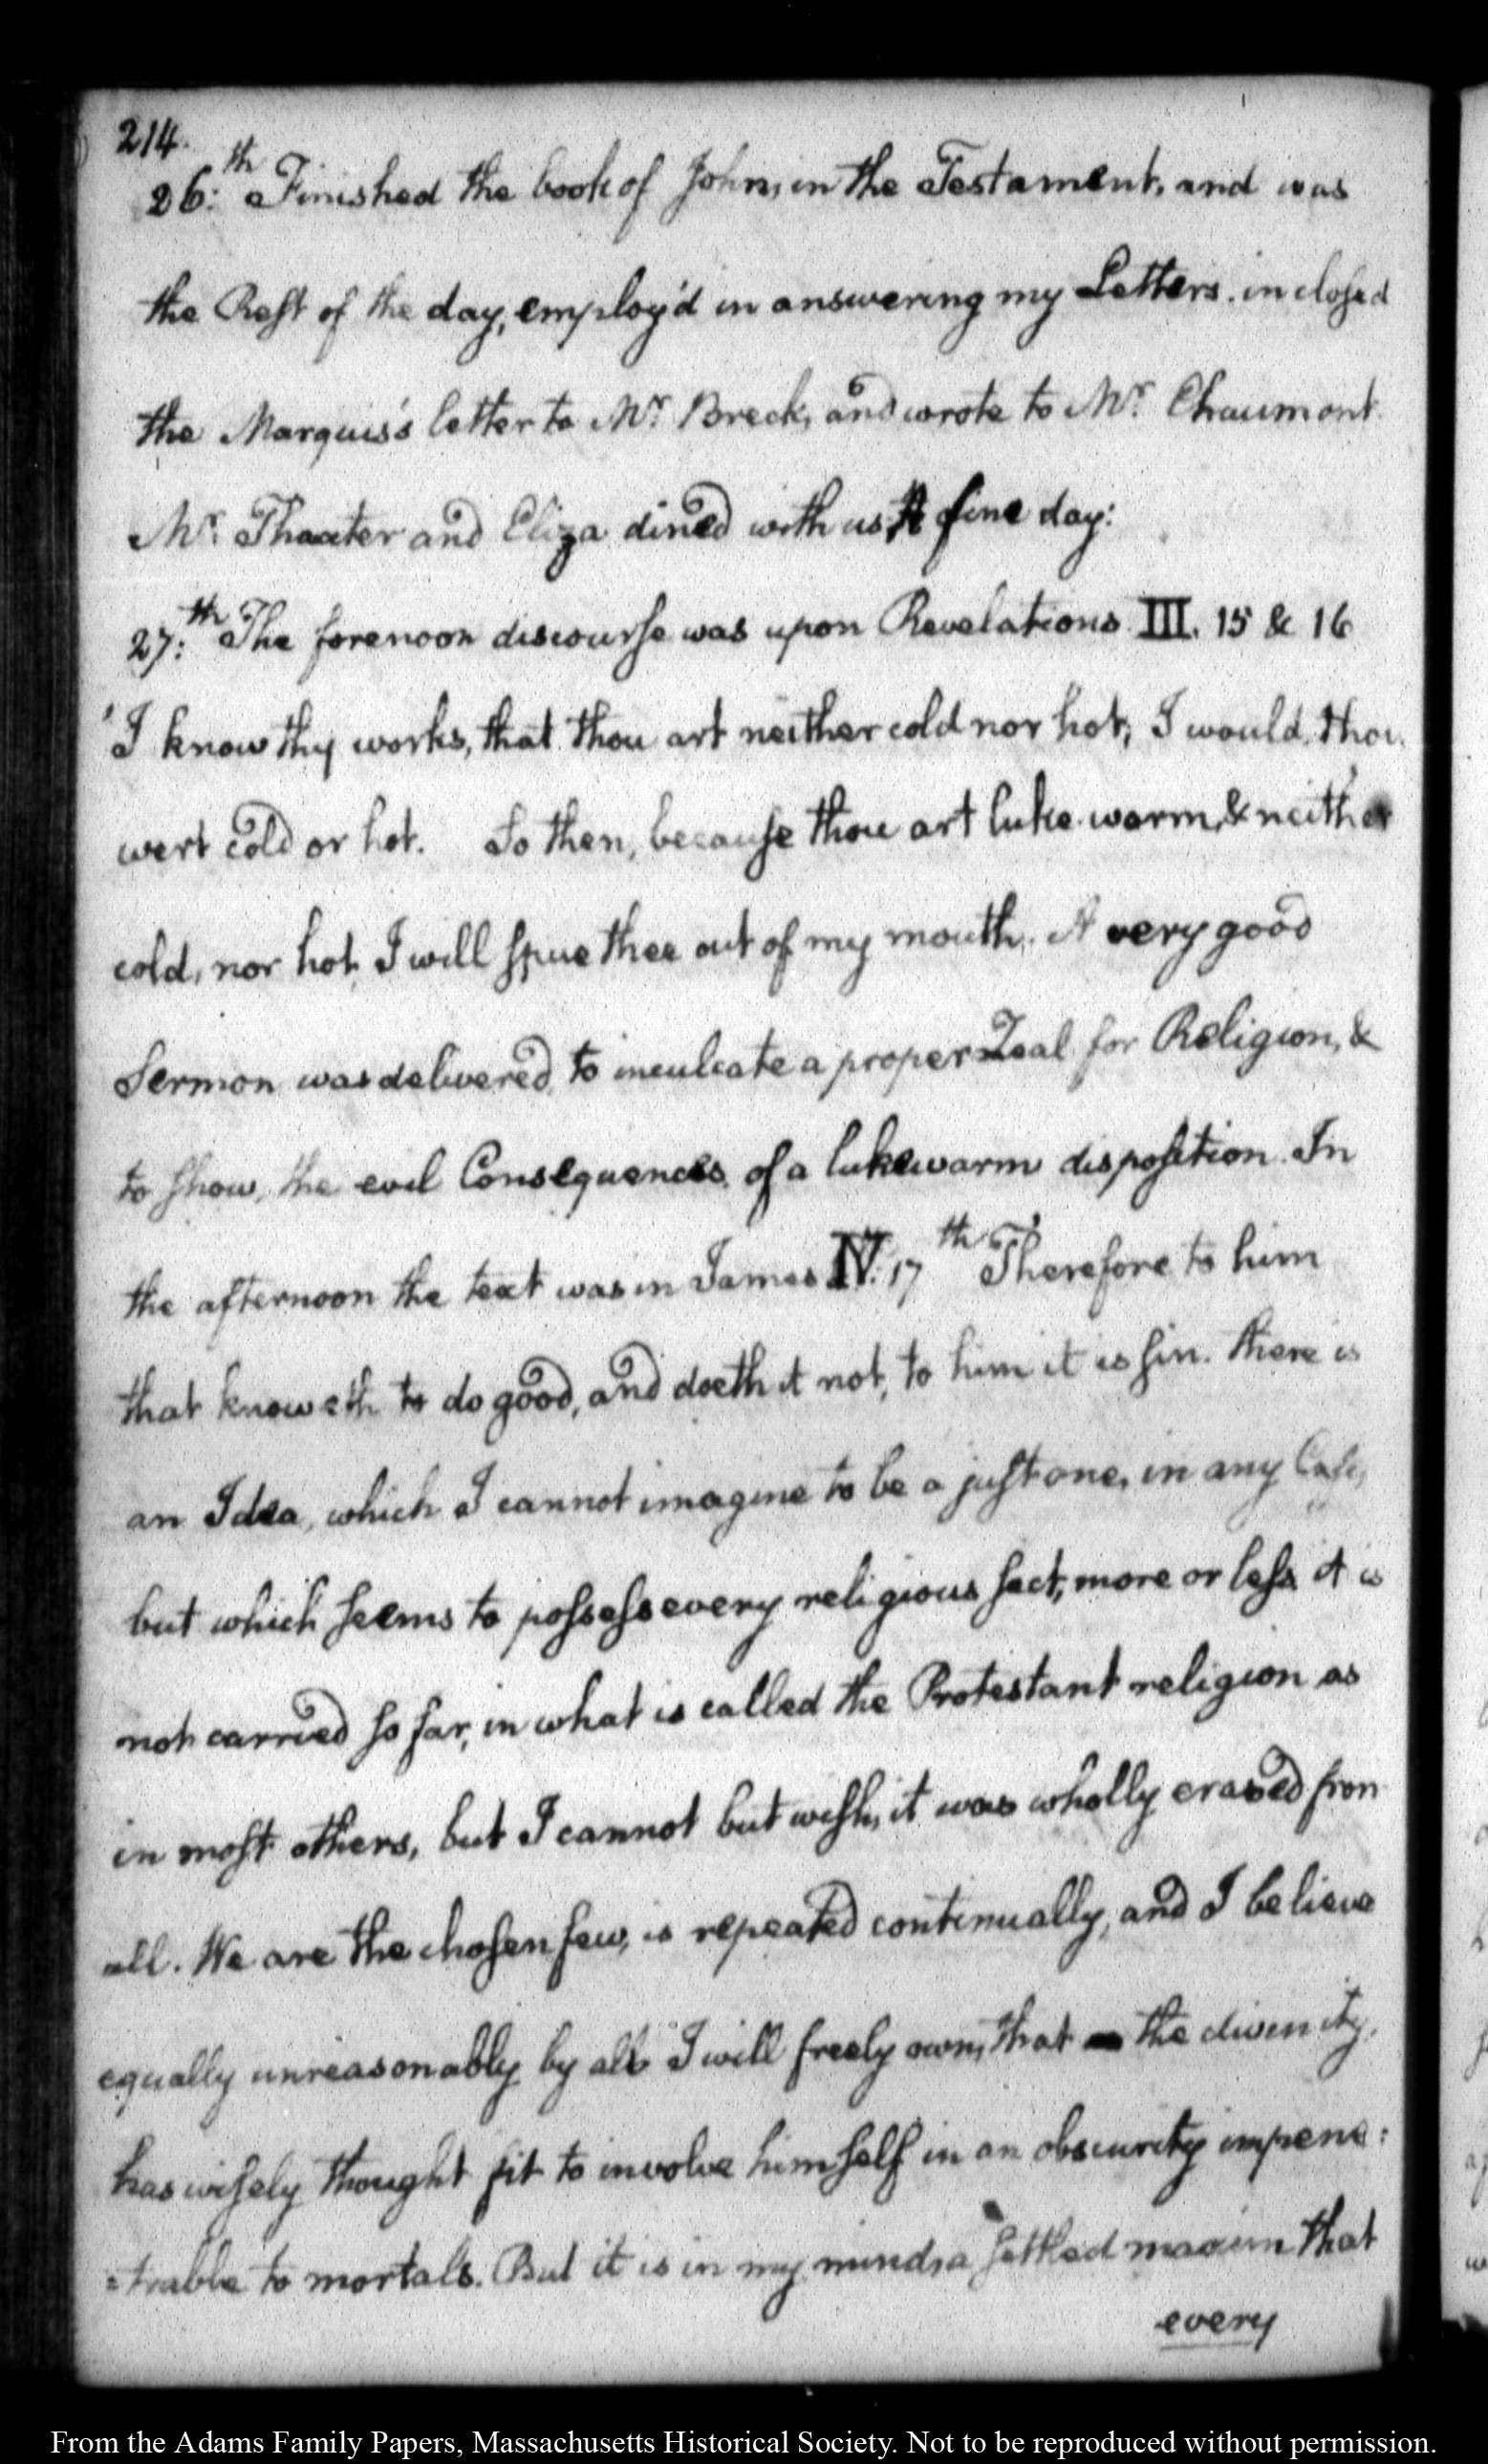 214.
26:th Finished the book of John, in the Testament, and was
the Rest of the day, employ'd in answering my Letters. inclosed
the Marquis's letter to Mr. Breck, and wrote to Mr. Chaumont.
Mr. Thaxter and Eliza dined with us. A fine day:
27:th The forenoon discourse was upon Revelations III. 15 & 16
'I know thy works, that thou art neither cold nor hot; I would, thou
wert cold or hot. So then, because thou art luke-warm, & neither
cold, nor hot, I will spue thee out of my mouth. A very good
Sermon was delivered, to inculcate a proper Zeal for Religion, &
to show, the evil Consequences, of a lukewarm disposition. In
the afternoon the text was in James IV. 17th Therefore to him
that knoweth to do good, and doeth it not, to him it is sin. there is
an Idea, which I cannot imagine to be a just one, in any Case,
but which seems to possess every religious sect, more or less it is
not carried so far, in what is called the Protestant religion as
in most others, but I cannot but wish, it was wholly erased from
all. We are the chosen few, is repeated continually, and I believe
equally unreasonably by all. I will freely own, that the divinity,
has wisely thought fit to involve himself in an obscurity impene:
=trable to mortals. But it is in my mind, a settled maxim that
every
From the Adams Family Papers, Massachusetts Historical Society. Not to be reproduced without permission.